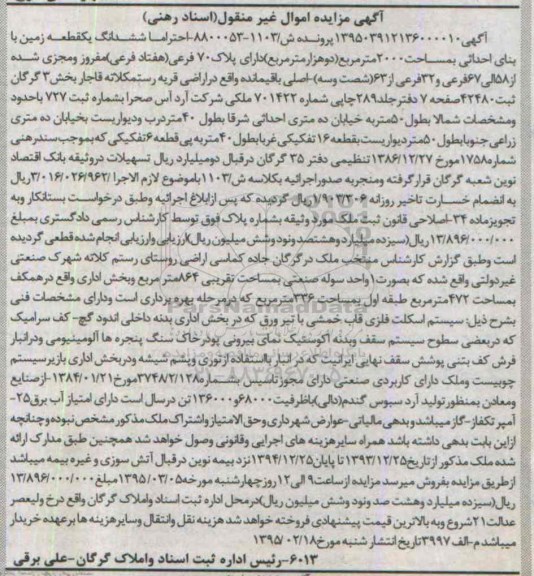 آگهی مزایده اموال غیر منقول(اسناد رهنی)
آگهی۱۳۹۵۰۳۹۱۲۱۳۶۰۰۰۰۱۰ پرونده ش/۱۱۰۳-۸۸۰۰۰۵۳-احتراما ششدانگ یکقطعه زمین با
بنای احداثی بمساحت۲۰۰۰مترمربع(دوهزارمترمربع)دارای پلاک۷۰ فرعی(هفتاد فرعی)مفروز ومجزی شده
از۵۸الی۶۷فرعی و۳۲فرعی از۶۳(شصت وسه)-اصلی باقیمانده واقع دراراضی قریه رستمکلاته قاجار بخش۳ گرگان
ثبت۴۲۴۸۰صفحه ۷ دفترجلد۲۸۹چاپی شماره ۷۰۱۴۲۲ ملکی شرکت آرد آس صحرا بشماره ثبت ۷۲۷ باحدود
ومشخصات شمالا بطول ۵۰متربه خیابان ده متری احداثی شرقا بطول ۴۰متردرب ودیواریست بخیابان ده متری
زراعی جنوبابطول۵۰متردیواریست بقطعه۱۶تفکیکی غربابطول۴۰متربه پی قطعه۶تفکیکی که بموجب سندرهنی
شماره۱۷۵۸مورخ ۱۳۸۶/۱۲/۲۷تنظیمی دفتر ۳۵ گرگان درقبال دومیلیارد ریال تسهیلات دروثیقه بانک اقتصاد
نوین شعبه گرگان قرارگرفته ومنجربه صدوراجرائیه بکلاسه ش/۱۱۰۳باموضوع لازم الاجرا ۳/۰۱۶/۰۲۶/۹۶۲ریال
به انضمام خسارت تاخیر روزانه ریال گردیده که پس ازابلاغ اجرائیه وطبق درخواست بستانکار وبه
تجویزماده ۳۴-اصلاحی قانون ثبت ملک مورد وثیقه بشماره پلاک فوق توسط کارشناس رسمی دادگستری بمبلغ
۱۳/۸۹۶/۰۰۰/۰۰۰ ریال(سیزده میلیارد وهشتصد ونود وشش میلیون ریال)ارزیابی وارزیابی انجام شده قطعی گردیده
است وطبق گزارش کارشناس منتخب ملک درگرگان جاده کماسی اراضی روستای رستم کلاته شهرک صنعتی
غیردولتی واقع شده که بصورت۱ واحد سوله صنعتی بمساحت تقریبی ۸۶۴متر مربع وبخش اداری واقع درهمکف
بمساحت ۴۷۲مترمربع طبقه اول بمساحت ۳۳۶مترمربع که درمرحله بهره برداری است ودارای مشخصات فنی
بشرح ذیل: سیستم اسکلت فلزی قاب خمشی با تیر ورق که در بخش اداری بدنه داخلی اندود گچ- کف سرامیک
که دربعضی سطوح سیستم سقف وبدنه آکوستیک نمای بیرونی پودرخاک سنگ پنجره ها آلومینیومی ودرانبار
فرش کف بتنی پوشش سقف نهایی ایرانیت که در انبار بااستفاده ازتوری وپشم شیشه ودربخش اداری بازیرسیستم
چوبیست وملک دارای کاربردی صنعتی دارای مجوزتاسیس بشماره۳۷۴۸۲/۱۲۸مورخ۱۳۸۴/۰۱/۲۱-ازصنایع
ومعادن بمنظورتولید آرد سبوس گندم(دالی)باظرفیت۶۸۰۰۰و۱۳۶۰۰۰تن درسال است دارای امتیاز آب برق۲۵-
آمپر تکفاز-گازمیباشدوبدهی مالیاتی-عوارض شهرداری وحق الامتیازواشتراک ملک مذکور مشخص نبوده وچنانچه
ازاین بابت بدهی داشته باشد همراه سایرهزینه های اجرایی وقانونی وصول خواهد شد همچنین طبق مدارک ارائه
شده ملک مذکور ازتاریخ۱۳۹۳/۱۲/۲۵تا پایان۱۳۹۴/۱۲/۲۵نزد بیمه نوین درقبال آتش سوزی و غیره بیمه میباشد
ازطریق مزایده بفروش میرسد مزایده ازساعت۹ الی۱۲روزچهارشنبه مورخه۱۳۹۵/۰۳/۰۵مبلغ۱۳/۸۹۶/۰۰۰/۰۰۰
ریال(سیزده میلیارد وهشت صد ونود وشش میلیون ریال)درمحل اداره ثبت اسناد واملاک گرگان واقع درخ ولیعصر
عدالت۲۱شروع وبه بالاترین قیمت پیشنهادی فروخته خواهد شد هزینه نقل وانتقال وسایرهزینه ها برعهده خریدار
میباشد م-الف۳۹۹۷تاریخ انتشار شنبه مورخ۱۳۹۵/۰۲/۱۸
۶۰۱۳-رئیس اداره ثبت اسناد واملاک گرگان-علی برقی